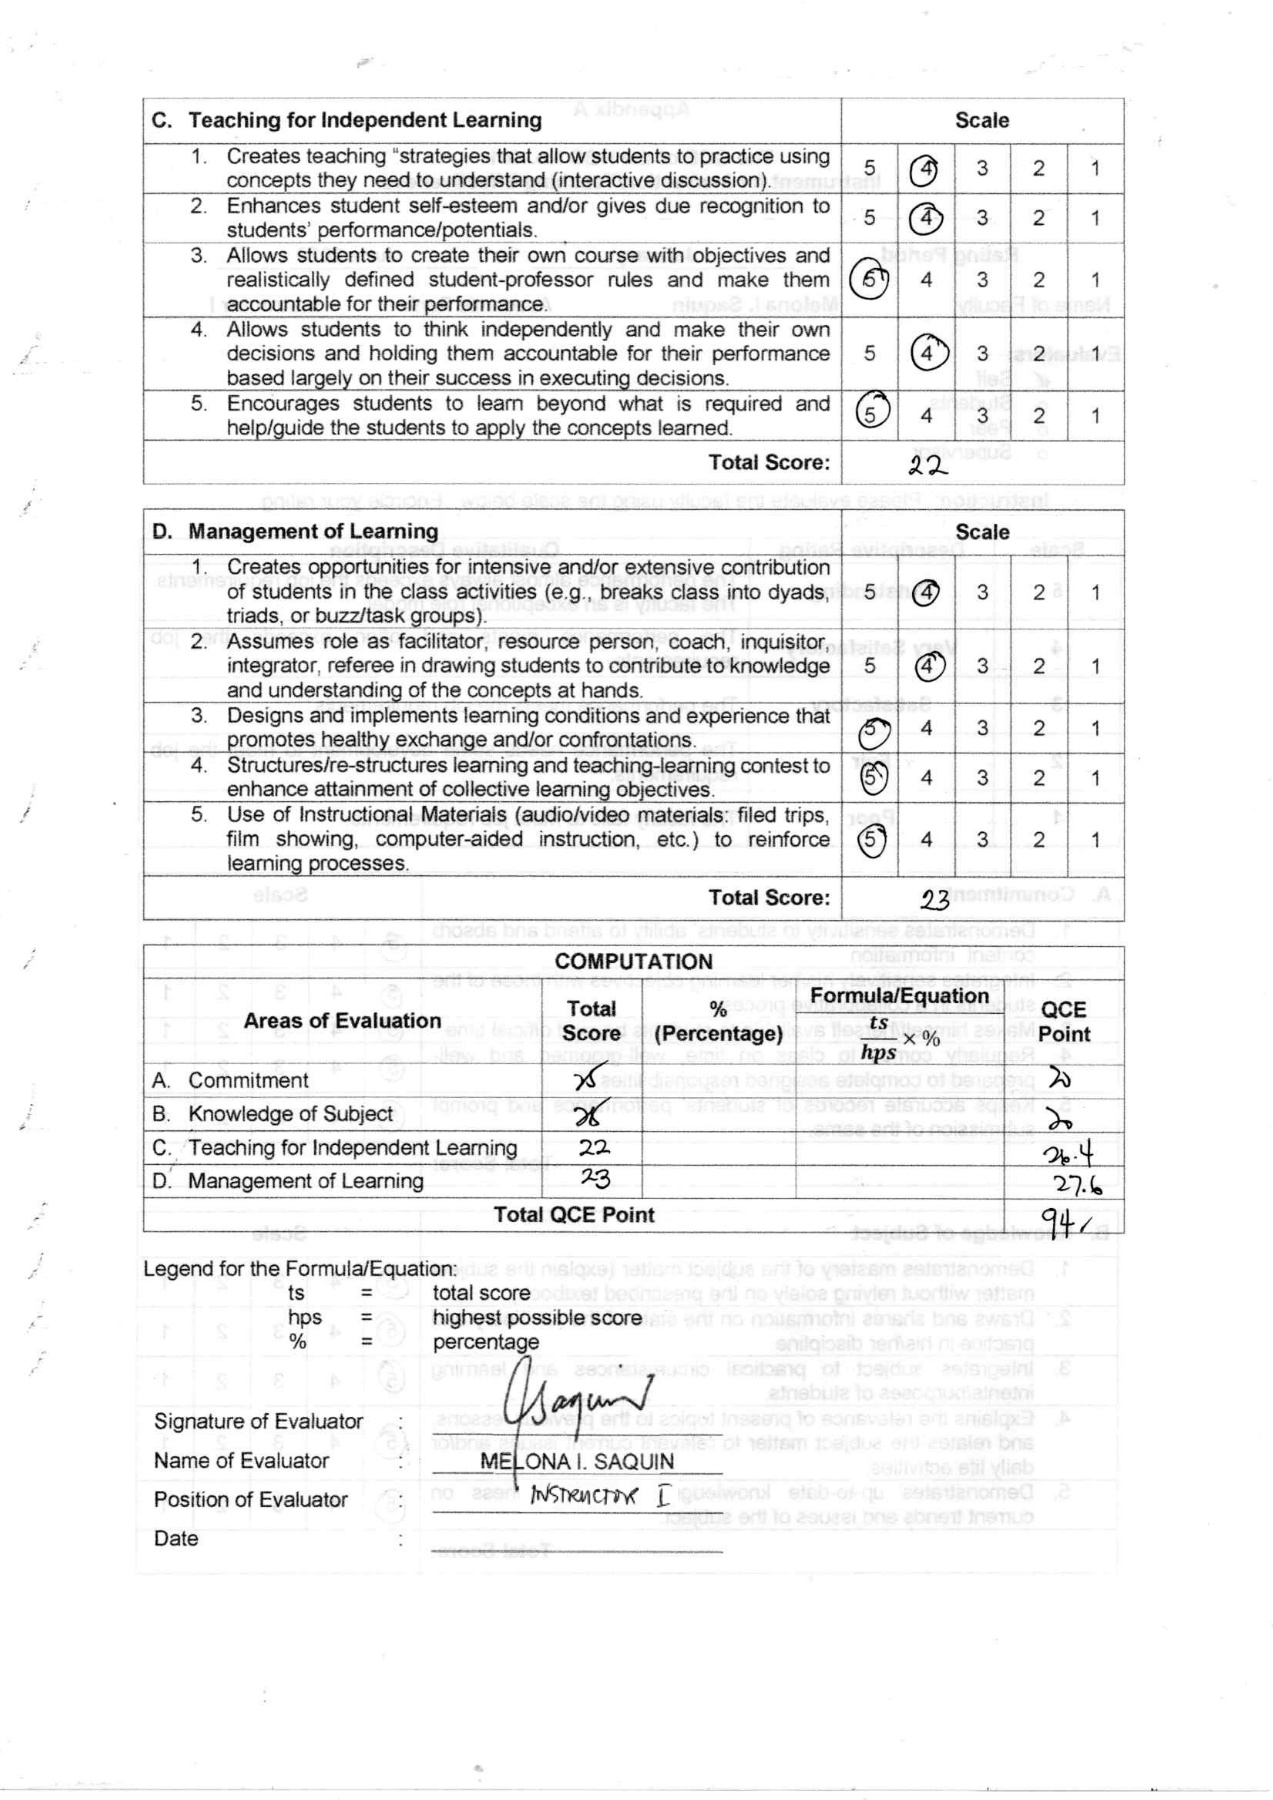 C. Teaching for Independent Learning Scale
1. Creates teaching “strategies that allow students to practice using
concepts they need to understand (interactive discussion). 5 4 3 2 1
2. Enhances student self-esteem and/or gives due recognition to
students’ performance/potentials. 5 4 3 2 1
3. Allows students to create their own course with objectives and
realistically defined student-professor rules and make them 5 4 3 2 1
accountable for their performance.
4. Allows students to think independently and make their own
decisions and holding them accountable for their performance 5 4 3 2 1
based largely on their success in executing decisions.
5. Encourages students to learn beyond what is required and
help/guide the students to apply the concepts learned. 5 4 3 2 1
Total Score: 22
D. Management of Learning Scale
1. Creates opportunities for intensive and/or extensive contribution
of students in the class activities (e.g., breaks class into dyads, 5 4 3 2 1
triads, or buzz/task groups).
2. Assumes role as facilitator, resource person, coach, inquisitor,
integrator, referee in drawing students to contribute to knowledge 5 4 3 2 1
and understanding of the concepts at hands.
3. Designs and implements learning conditions and experience that
promotes healthy exchange and/or confrontations. 5 4 3 2 1
4. Structures/re-structures learning and teaching-learning contest to
enhance attainment of collective learning objectives. 5 4 3 2 1
5. Use of Instructional Materials (audio/video materials: filed trips,
film showing, computer-aided instruction, etc.) to reinforce 5 4 3 2 1
learning processes.
Total Score: 23
COMPUTATION
Areas of Evaluation Total Score % (Percentage) Formula/Equation ts/hps × % QCE Point
A. Commitment 25 20
B. Knowledge of Subject 20
C. Teaching for Independent Learning 22 26.4
D. Management of Learning 23 27.6
Total QCE Point 94
Legend for the Formula/Equation:
ts = total score
hps = highest possible score
% = percentage
Signature of Evaluator : Saquin
Name of Evaluator : MELONA I. SAQUIN
Position of Evaluator : INSTRUCTOR I
Date :